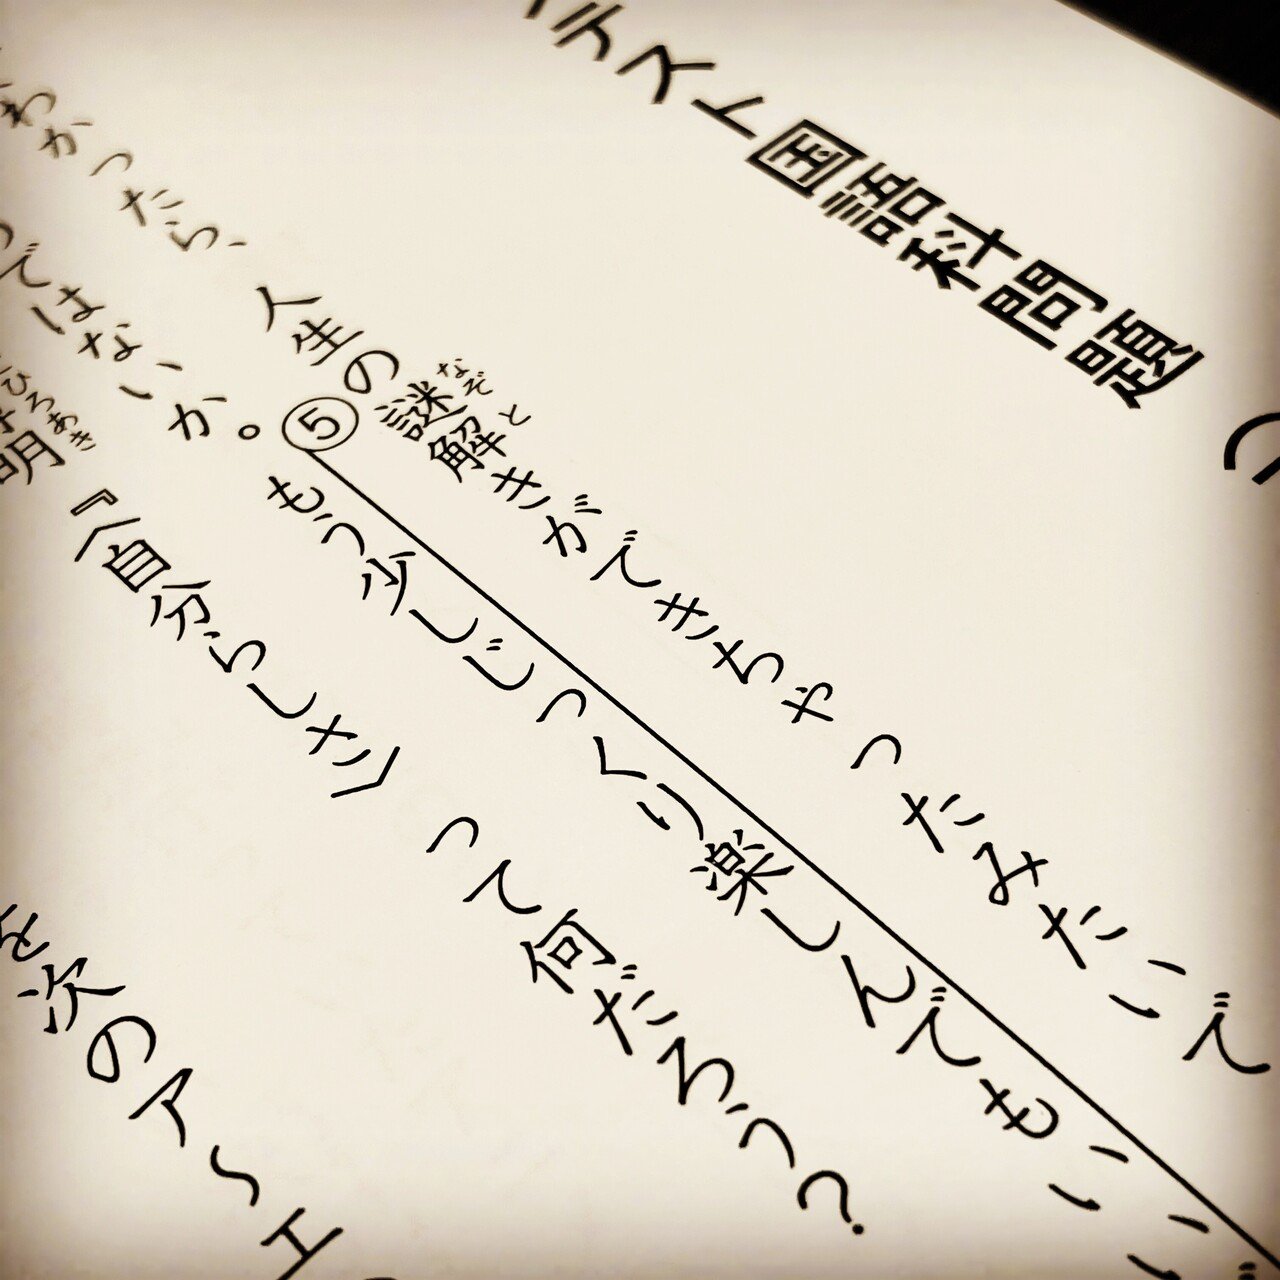 テスト国語科問題
わかったら、人生の謎解きができちゃったみたいで
なぞ と
ではないか。⑤もう少しじっくり楽しんでもいい
明『〈自分らしさ〉って何だろう？
ひろあき
を次のア〜エ